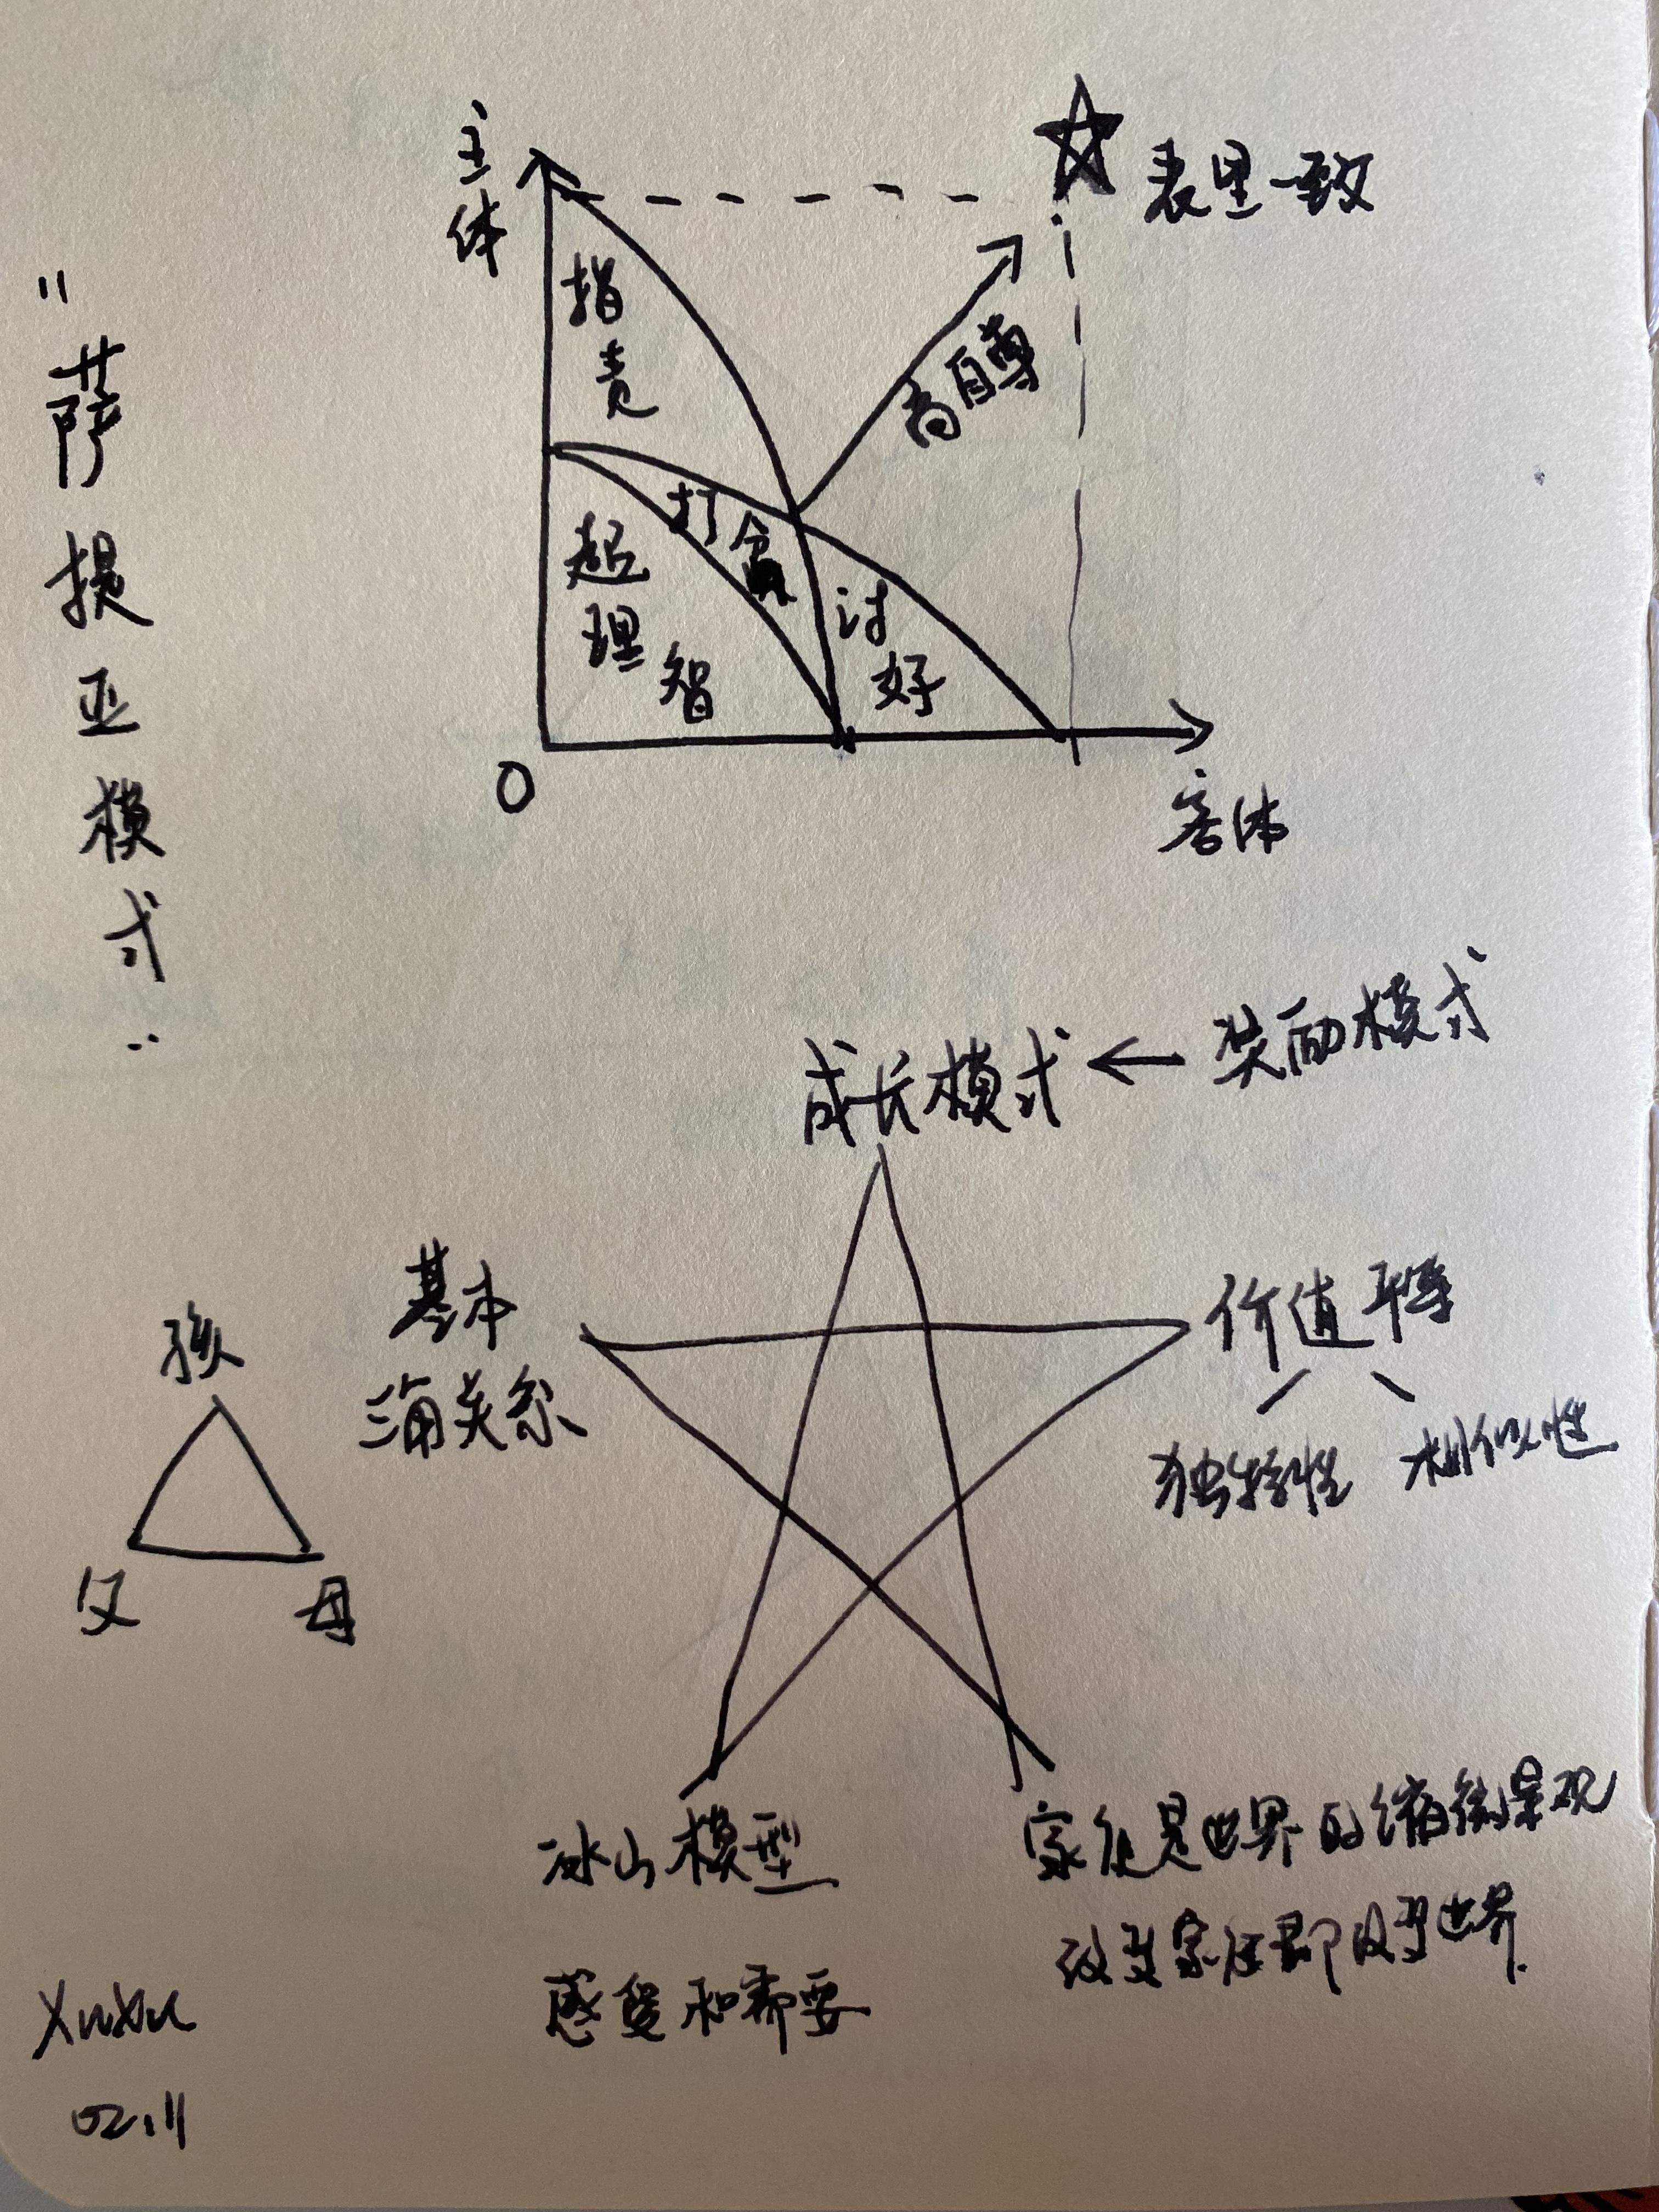 "萨提亚模式"
主体
表里一致
指责
高自尊
打岔
超理智
讨好
O
客体
成长模式 ← 奖励模式
基本
三角关系
价值平等
独特性 相似性
孩
父 母
冰山模型
感受和需要
家庭是世界的缩微景观
改变家庭即改变世界.
Xuxu
02.11